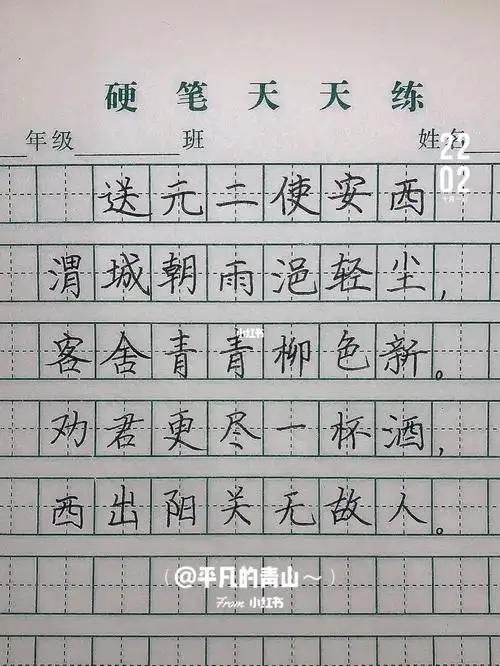 硬笔天天练
年级 班 姓名
22
02
送元二使安西
渭城朝雨浥轻尘，
客舍青青柳色新。
小红书
劝君更尽一杯酒，
西出阳关无故人。
（@平凡的青山～）
From 小红书